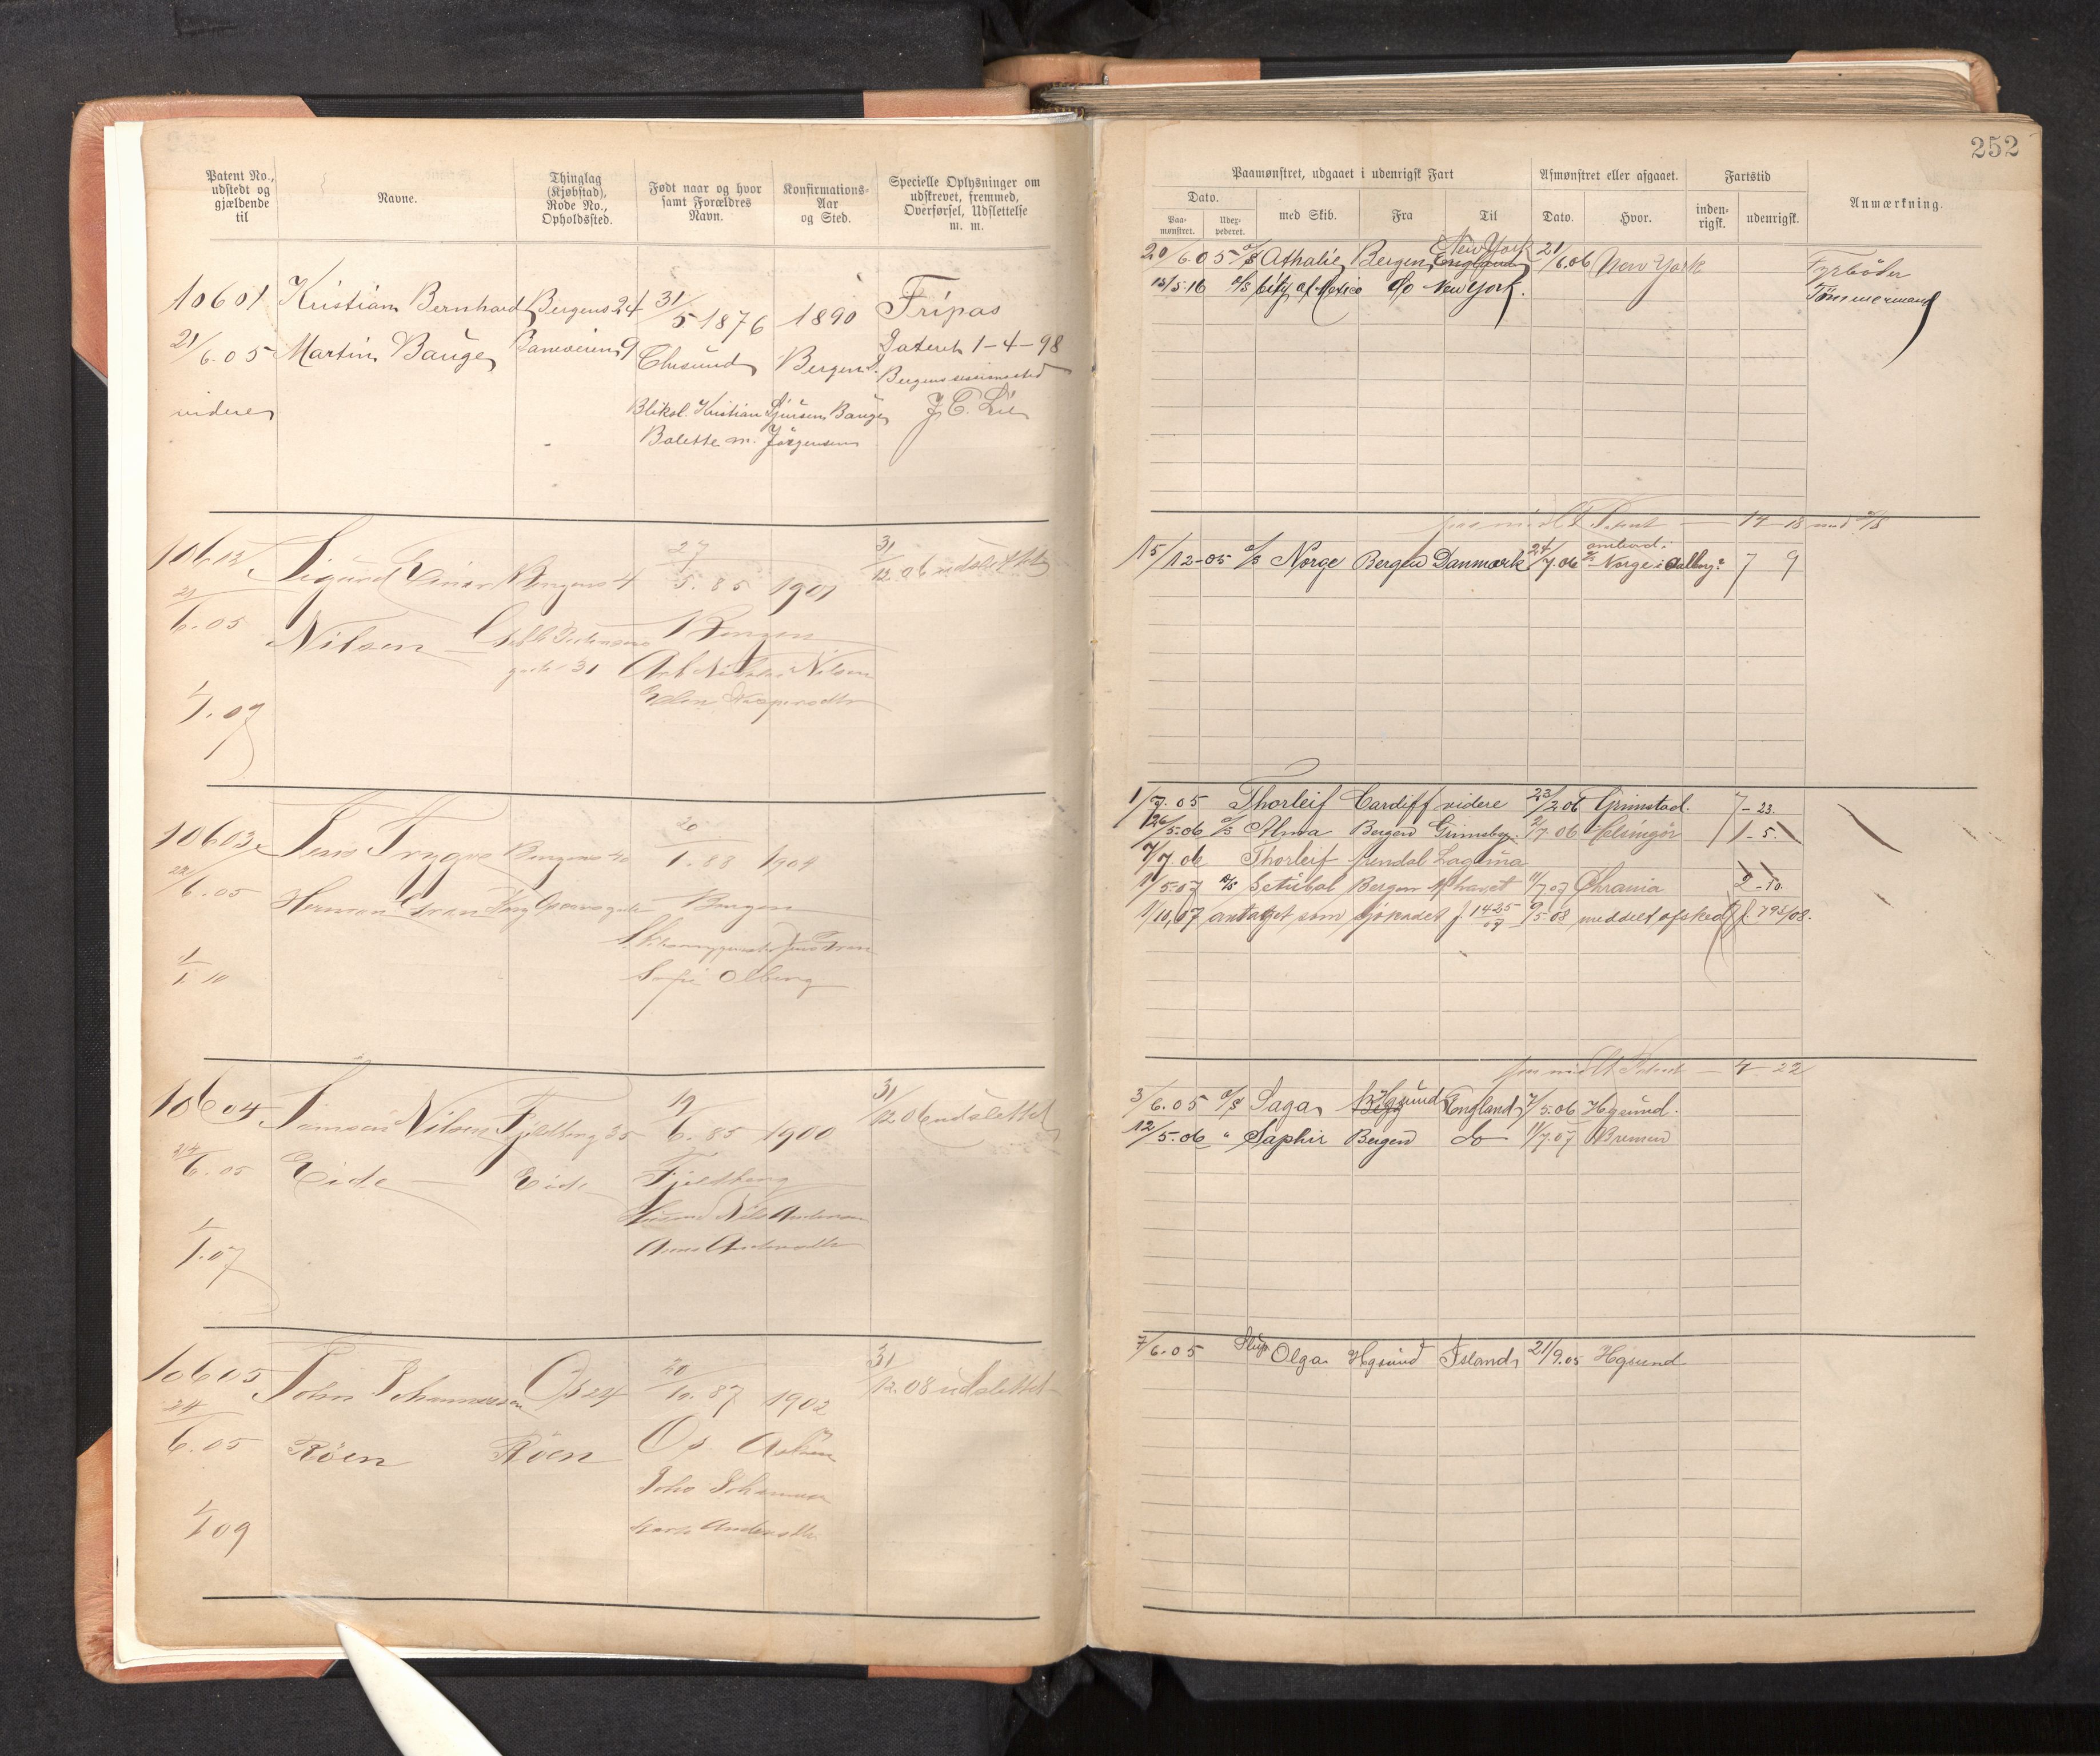 252
Patent No., udstedt og gjældende til
Navne.
Thinglag (Kjøbstad), Rode No., Opholdssted.
Født naar og hvor samt Forældres Navn.
Konfirmations-Aar og Sted.
Specielle Oplysninger om udskrevet, fremmed, Overførsel, Udslettelse m. m.
Paamønstret, udgaaet i udenrigsk Fart
Afmønstret eller afgaaet.
Fartstid
Anmærkning.
Dato.
Paa-mønstret.
med Skib.
Fra
Til
Dato.
Hvor.
inden-rigsk.
udenrigsk.
10601 Kristian Bernhard Bergens 24 31/5 1876 1890 Fripas
21/6.05 Martin Bauge Baneveien 9 Bergen Dateret 1-4-98
videre Bliksl. Kristian Bauge J. C. Lie
Balette m. Jørgensen
20/6 05 D/S Athalie Bergen England New York 21/6.06 New York Fyrbøder
13/5.16 D/S City of Mexico do New York. Tømmermand
10602 Sigurd Einar Bergens 4 27/5.85 1901 31/12.06 udslettet
21/6.05 Nilsen Bergen
gade 31 Nilsen
1/1.07
14-18
15/12-05 D/S Norge Bergen Danmark 24/7.06 ombord i D/S Norge i 7 9
10603 Jens Trygve Bergens 20/1.88 1904
22/6.05 Herman Bergen
1/1 10 Sofie Olberg
1/7.05 Thorleif Cardiff videre 23/2.06 Grimstad. 7-23.
26/5.06 D/S Alma Bergen Grimsby 2/7.06 Helsingør 1-5
7/7.06 Thorleif Arendal Laguna
1/5.07 D/S Setubal Bergen 11/7.07 Chrania 2-10.
1/10.07 antaget som Sjøkadet J. 1425/07 9/5 08 meddelt afsked J. 795/08.
10604 Samson Nilsen Fjeldberg 35 19/6.85 1900 31/12.06 udslettet
24/6.05 Eide Eide Fjeldberg
Nils
1/1.07
4-22
3/6.05 D/S Saga Hgsund England 7/5.06 Hgsund.
12/5.06 " Saphir Bergen do 11/7.07 Bremen
10605 John Johannessen Øs 24 20/10.87 1902 31/12.08 udslettet
24/6.05 Røen Røen Øs
1/1 09
7/6.05 Slup Olga Hgsund Island 21/9.05 Hgsund